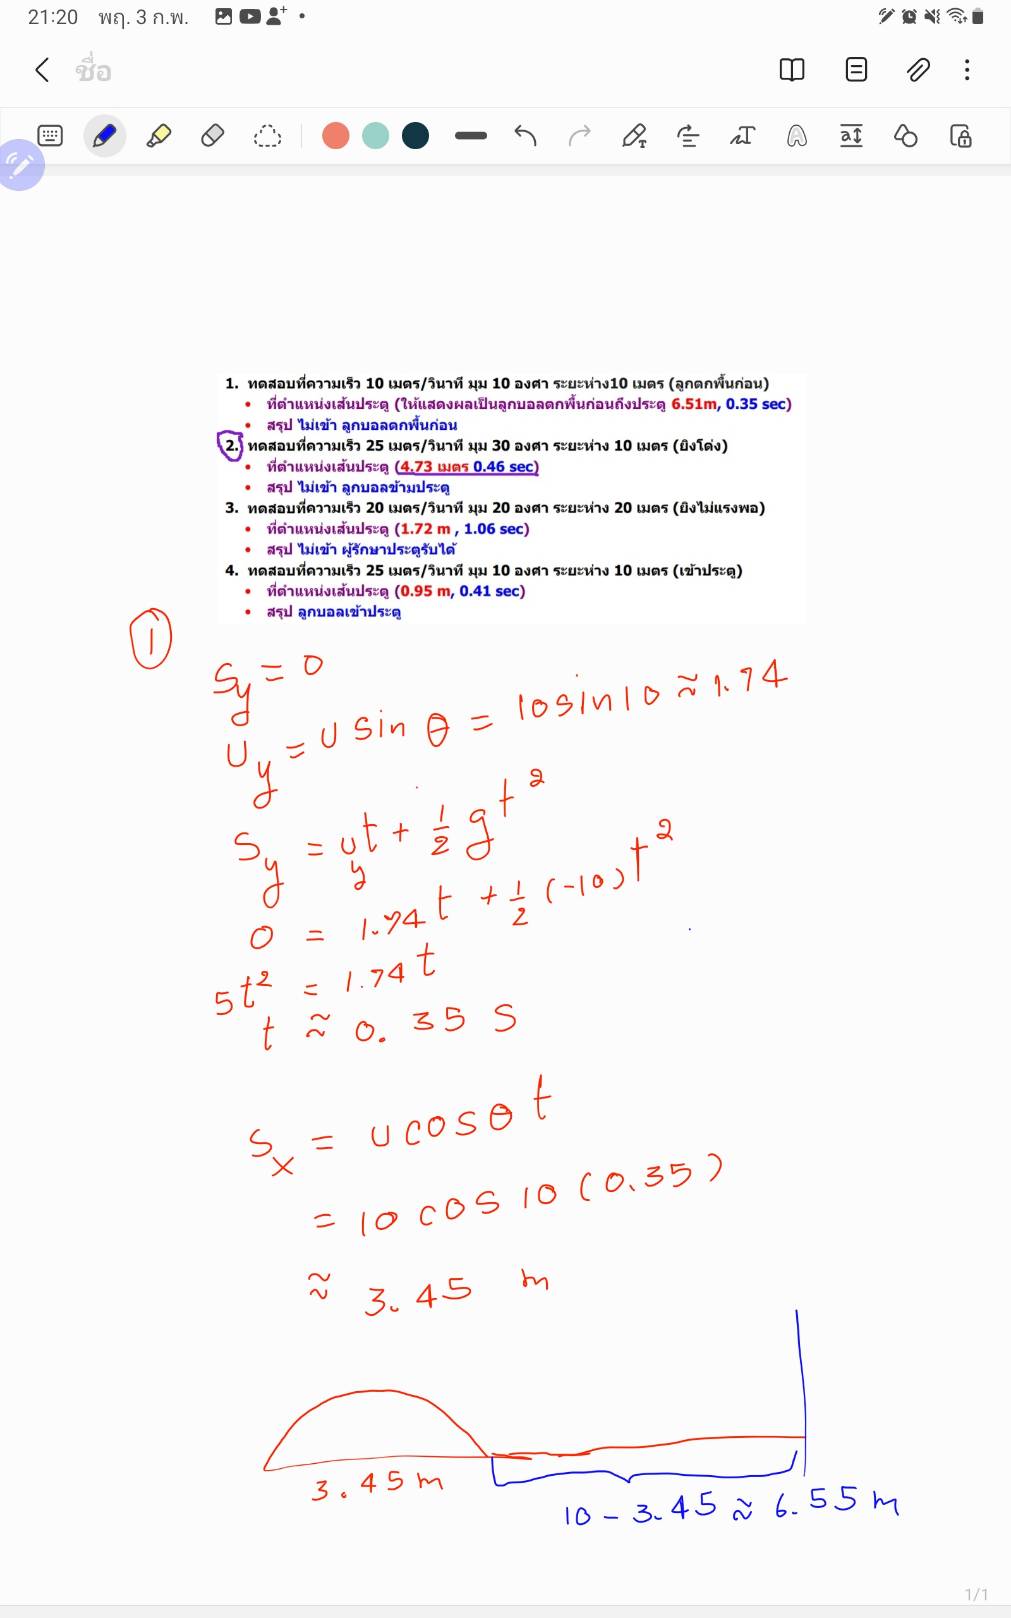 21:20 พฤ. 3 ก.พ.
ชื่อ
1. ทดสอบที่ความเร็ว 10 เมตร/วินาที มุม 10 องศา ระยะห่าง10 เมตร (ลูกตกพื้นก่อน)
• ที่ตำแหน่งเส้นประตู (ให้แสดงผลเป็นลูกบอลตกพื้นก่อนถึงประตู 6.51m, 0.35 sec)
• สรุป ไม่เข้า ลูกบอลตกพื้นก่อน
2. ทดสอบที่ความเร็ว 25 เมตร/วินาที มุม 30 องศา ระยะห่าง 10 เมตร (ยิงโด่ง)
• ที่ตำแหน่งเส้นประตู (4.73 เมตร 0.46 sec)
• สรุป ไม่เข้า ลูกบอลข้ามประตู
3. ทดสอบที่ความเร็ว 20 เมตร/วินาที มุม 20 องศา ระยะห่าง 20 เมตร (ยิงไม่แรงพอ)
• ที่ตำแหน่งเส้นประตู (1.72 m , 1.06 sec)
• สรุป ไม่เข้า ผู้รักษาประตูรับได้
4. ทดสอบที่ความเร็ว 25 เมตร/วินาที มุม 10 องศา ระยะห่าง 10 เมตร (เข้าประตู)
• ที่ตำแหน่งเส้นประตู (0.95 m, 0.41 sec)
• สรุป ลูกบอลเข้าประตู
①
Sy = 0
Uy = U sin θ = 10 sin 10 ≈ 1.74
Sy = uyt + 1/2 gt²
0 = 1.74 t + 1/2 (-10) t²
5t² = 1.74 t
t ≈ 0.35 S
Sx = u cos θ t
= 10 cos 10 (0.35)
≈ 3.45 m
3.45 m
10 - 3.45 ≈ 6.55 m
1/1